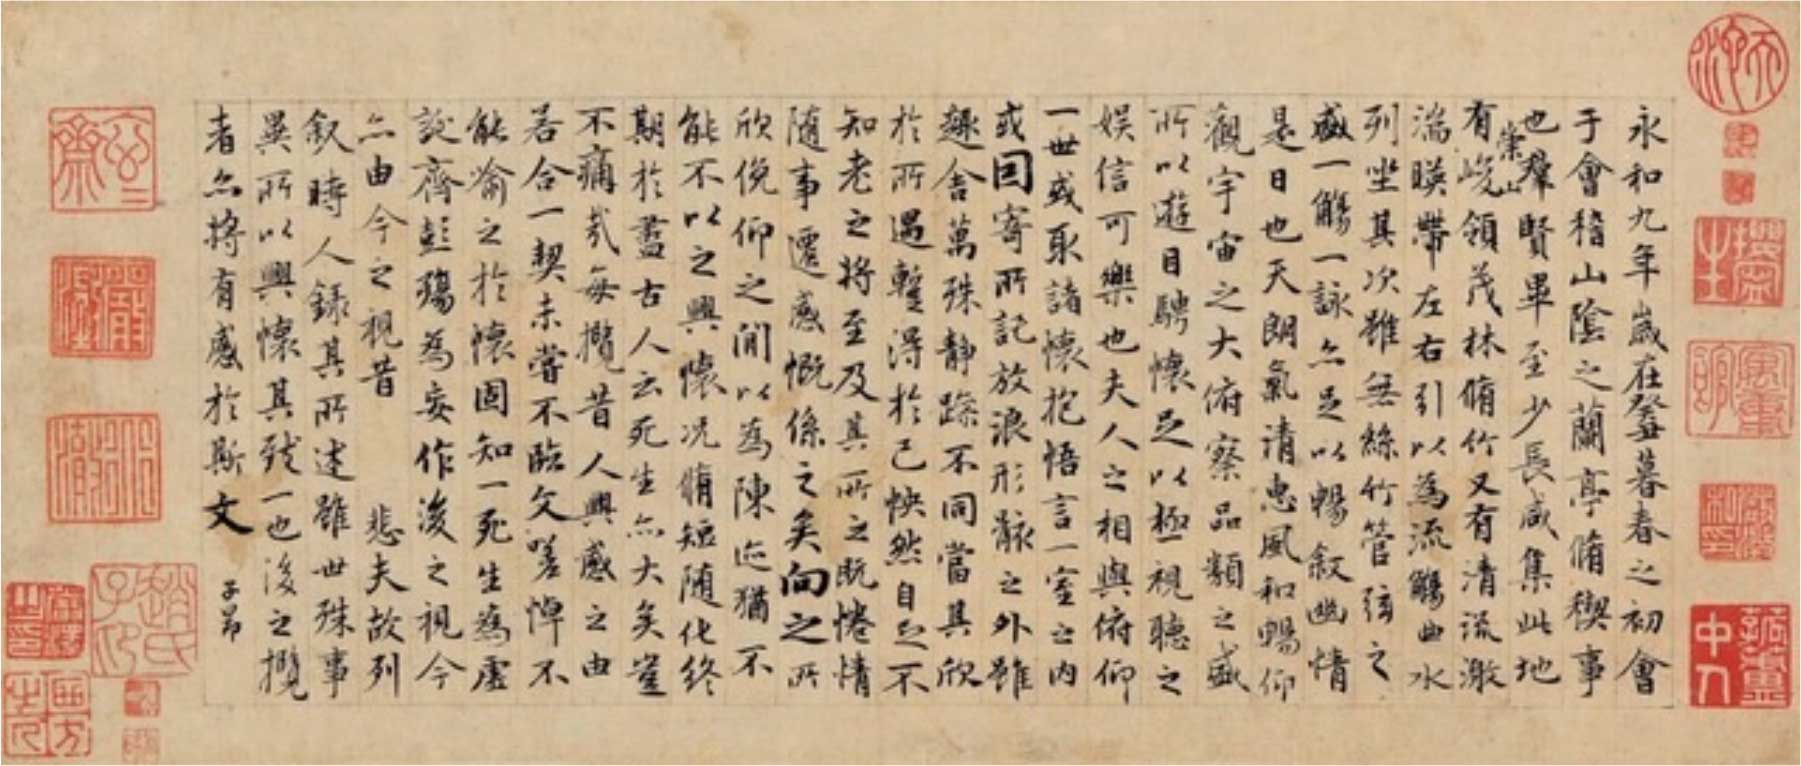 永和九年歲在癸丑暮春之初會
于會稽山陰之蘭亭脩稧事
也羣賢畢至少長咸集此地
有崇山峻領茂林脩竹又有清流激
湍暎帶左右引以為流觴曲水
列坐其次雖無絲竹管弦之
盛一觴一詠亦足以暢敘幽情
是日也天朗氣清惠風和暢仰
觀宇宙之大俯察品類之盛
所以遊目騁懷足以極視聽之
娛信可樂也夫人之相與俯仰
一世或取諸懷抱悟言一室之內
或因寄所託放浪形骸之外雖
趣舍萬殊静躁不同當其欣
於所遇蹔得於己怏然自足不
知老之將至及其所之既惓情
隨事遷感慨係之矣向之所
欣俛仰之閒以為陳迹猶不
能不以之興懷況脩短隨化終
期於盡古人云死生亦大矣豈
不痛哉每攬昔人興感之由
若合一契未嘗不臨文嗟悼不
能喻之於懷固知一死生為虛
誕齊彭殤為妄作後之視今
亦由今之視昔 悲夫故列
敘時人錄其所述雖世殊事
異所以興懷其致一也後之攬
者亦將有感於斯文 子昂
趙氏子昂